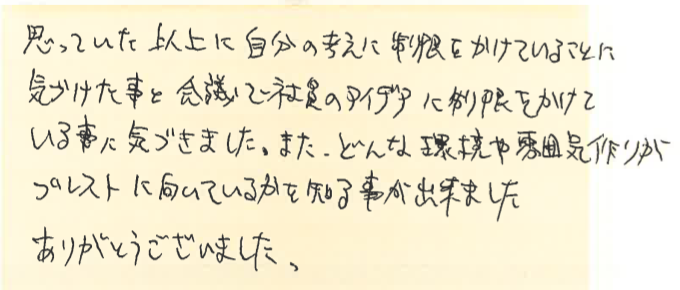 思っていた以上に自分の考えに制限をかけていることに
気づけた事と会議で社員のアイデアに制限をかけて
いる事に気づきました。また、どんな環境や雰囲気作りが
ブレストに向いているかを知る事が出来ました
ありがとうございました。